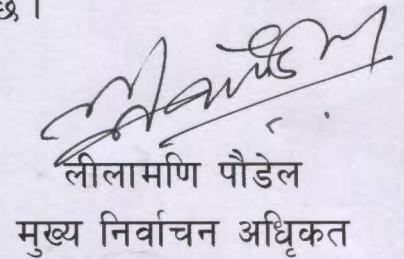 छ ।
लीलामणि पौडेल
मुख्य निर्वाचन अधिकृत